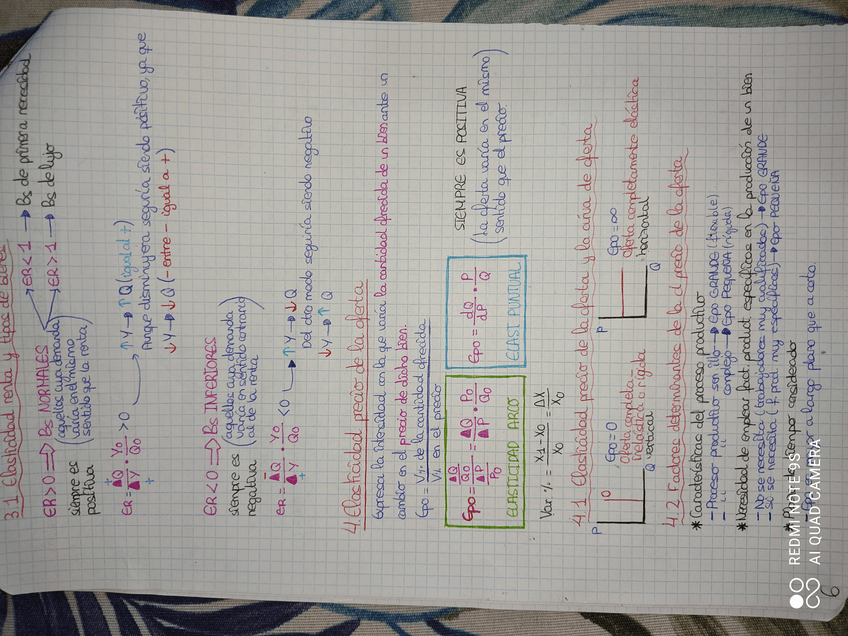 3.1 Elasticidad renta y tipos de bienes
ER>0 ⟹ Bs NORMALES
ER<1 → Bs de primera necesidad
ER>1 → Bs de lujo
siempre es positiva
(aquellos cuya demanda varía en el mismo sentido que la renta)
ER = ΔQ/ΔY · Y0/Q0 > 0
↑Y → ↑Q (igual al +)
Aunque disminuyera seguiría siendo positivo, ya que
↓Y → ↓Q (- entre - igual a +)
ER<0 ⟹ Bs INFERIORES
siempre es negativa
(aquellos cuya demanda varía en sentido contrario al de la renta)
ER = ΔQ/ΔY · Y0/Q0 < 0
↑Y → ↓Q
Del otro modo seguiría siendo negativo
↓Y → ↑Q
4. Elasticidad precio de la oferta
Expresa la intensidad con la que varía la cantidad ofrecida de un bien ante un
cambio en el precio de dicho bien.
Epo = V% de la cantidad ofrecida / V% en el precio
Epo = (ΔQ/Q0)/(ΔP/P0) = ΔQ/ΔP · P0/Q0
ELASTICIDAD ARCO
Epo = dQ/dP · P/Q
ELAST PUNTUAL
SIEMPRE ES POSITIVA
(La oferta varía en el mismo
sentido que el precio)
Var % = (X1 - X0)/X0 = ΔX/X0
4.1 Elasticidad precio de la oferta y la curva de oferta
P
O
Q
Epo=0
Oferta completa=
Inelástica o rígida
vertical
P
Q
Epo=∞
Oferta completamente elástica
horizontal
4.2 Factores determinantes de la ε precio de la oferta
* Características del proceso productivo
- Proceso productivo sencillo → Epo GRANDE (flexible)
- " " complejo → Epo PEQUEÑA (rígida)
* Necesidad de emplear fact product específicos en la producción de un bien
- No se necesita (trabajadores muy cualificados) → Epo GRANDE
- Sí se necesita (f. prod. muy específicos) → Epo PEQUEÑA
* tiempo considerado
- a largo plazo que a corto.
6
REDMI NOTE 9S
AI QUAD CAMERA